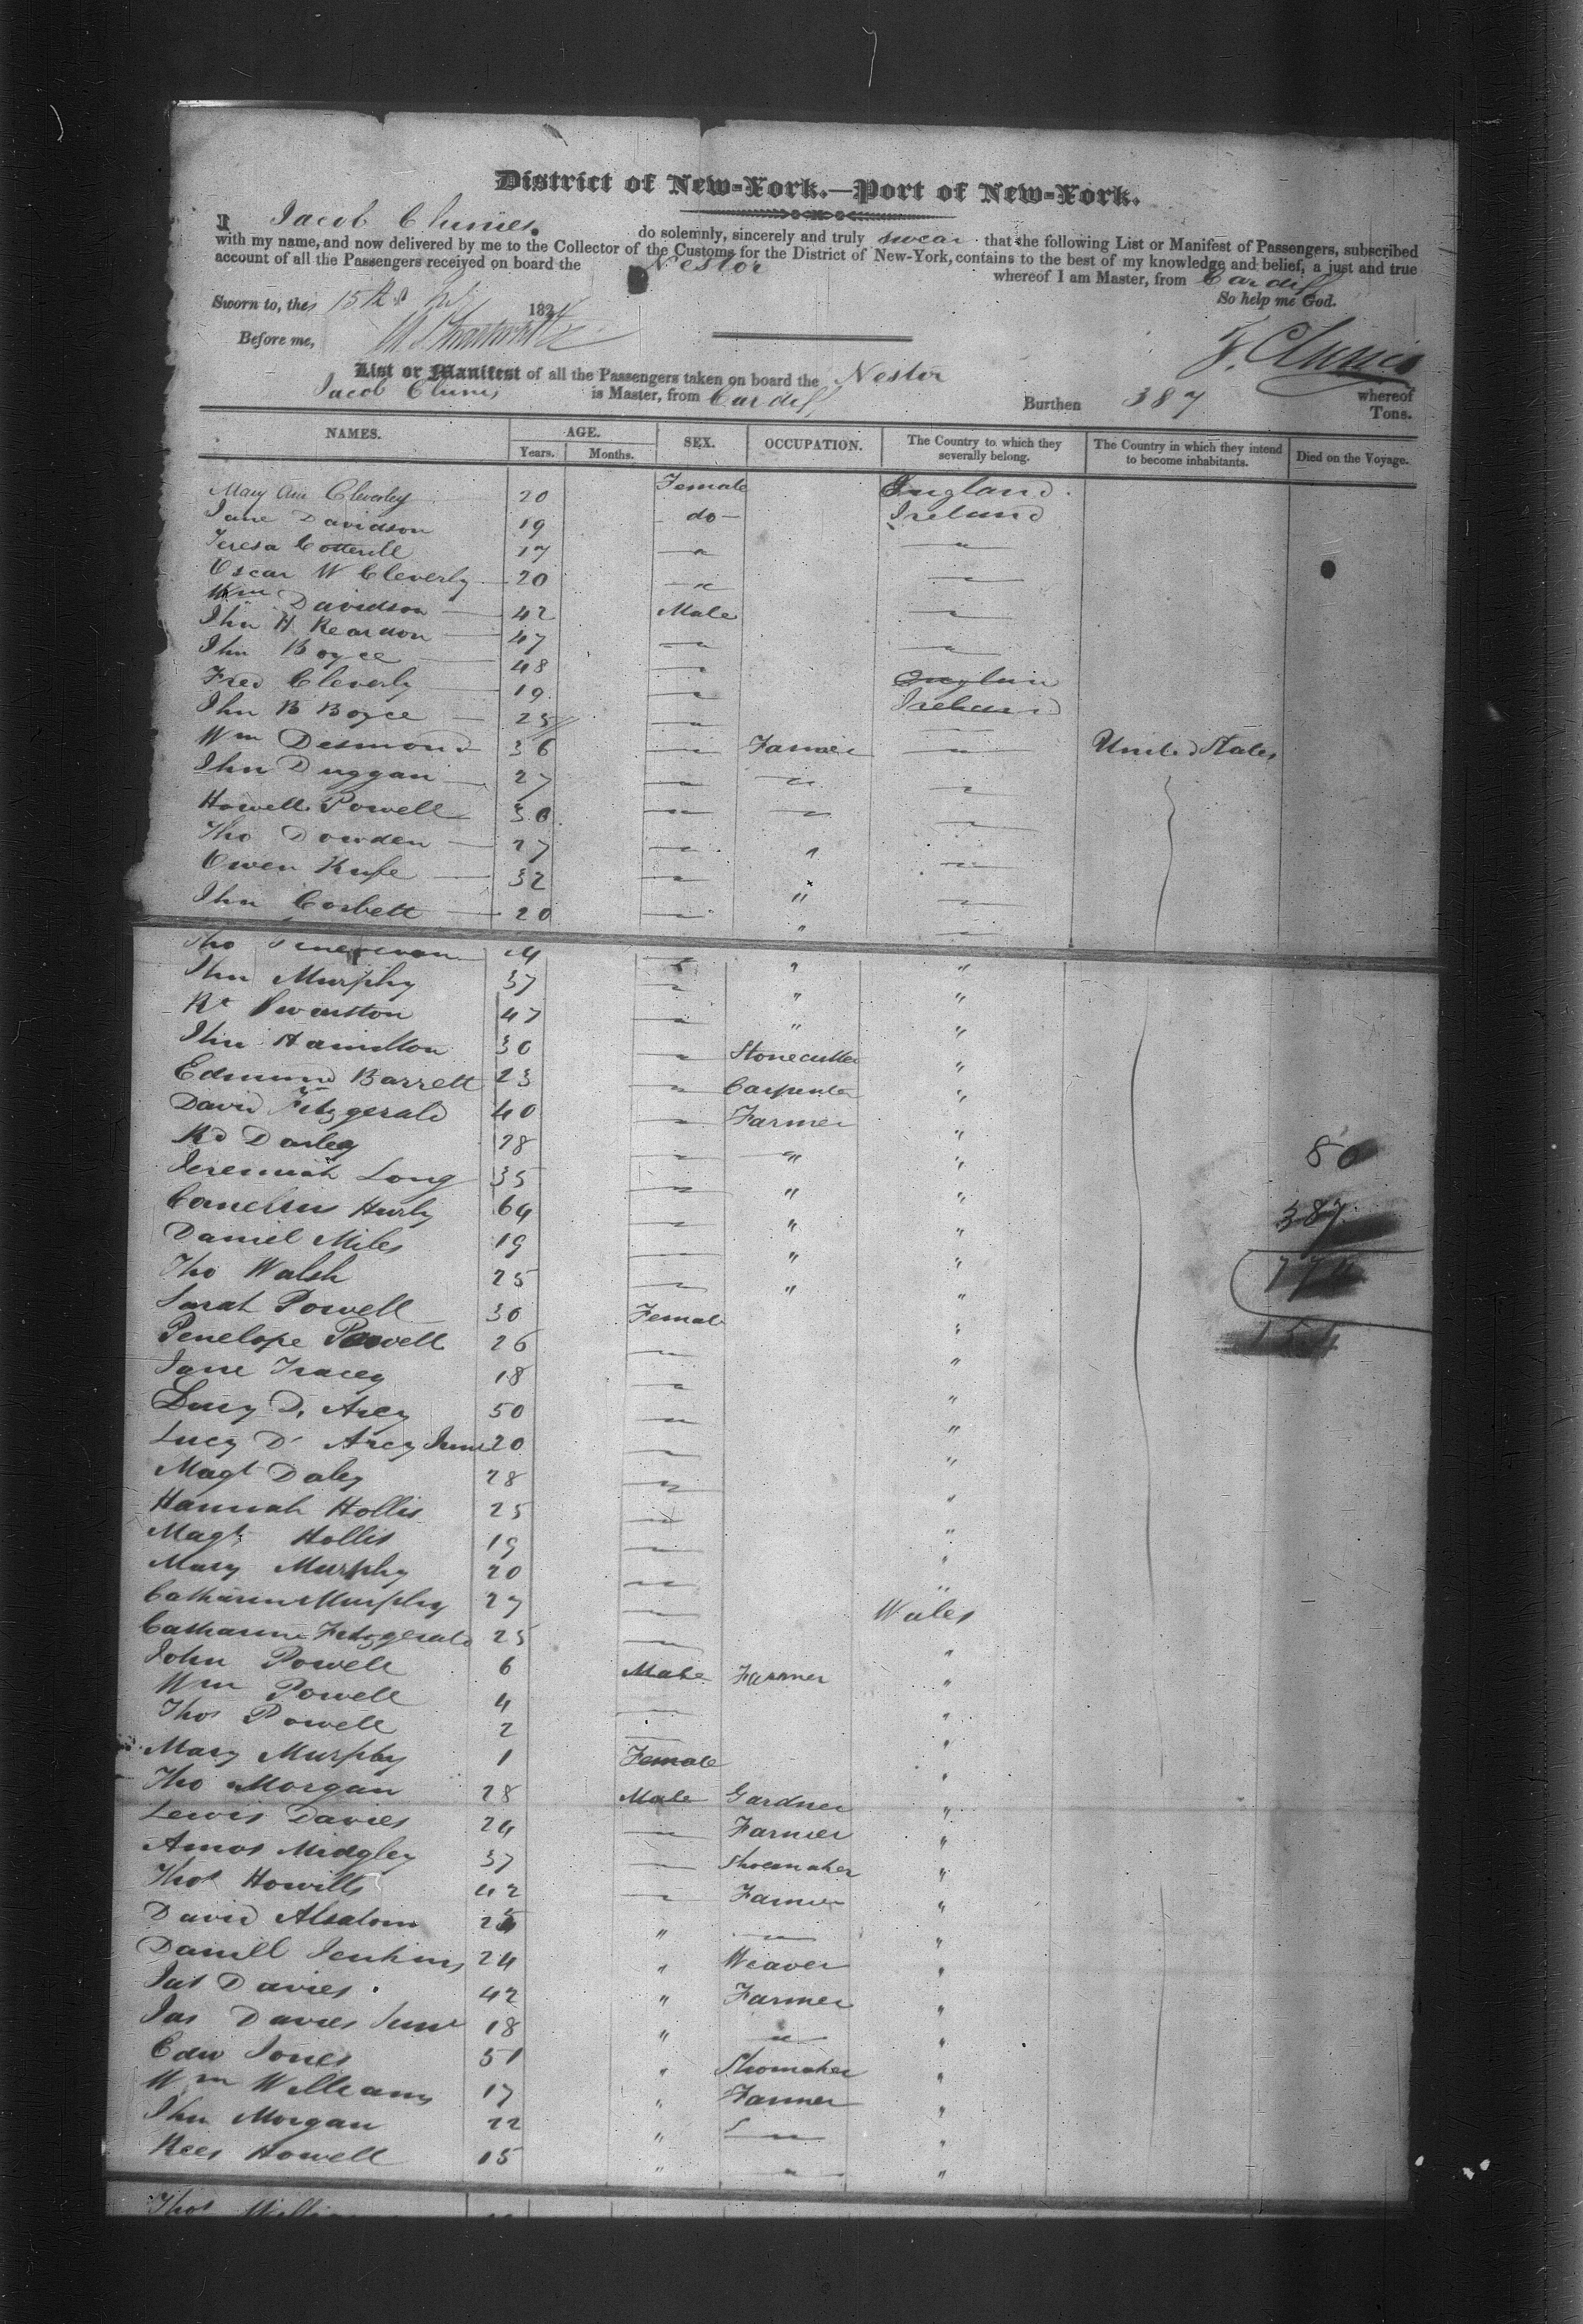 District of New-York.—Port of New-York.
I Jacob Clunies. do solemnly, sincerely and truly swear that the following List or Manifest of Passengers, subscribed
with my name, and now delivered by me to the Collector of the Customs for the District of New-York, contains to the best of my knowledge and belief, a just and true
account of all the Passengers received on board the Nestor whereof I am Master, from Cardiff
Sworn to, the 15th 183 So help me God.
Before me,
J. Clunies
List or Manifest of all the Passengers taken on board the Nestor whereof
Jacob Clunies is Master, from Cardiff Burthen 387 Tons.
NAMES. AGE. SEX. OCCUPATION. The Country to which they severally belong. The Country in which they intend to become inhabitants. Died on the Voyage.
Years. Months.
Mary Ann Cleverley 20 Female England
Jane Davidson 19 do Ireland
Teresa Cotterill 17 "
Oscar W Cleverly 20 " "
Wm Davidson 42 Male "
Jhn H. Reardon 47 " "
Jhn Boyce 48 "
Fred Cleverly 19 " Englan
Jhn B Boyce 25 " Ireland
Wm Desmond 36 " Farmer " United States
Jhn Duggan 27 " " "
Howell Powell 30 " " "
Tho Dowden 27 " " "
Owen Kufe 32 " " "
Jhn Corbett 20 " " "
Tho " " "
Jhn Murphy 37 " " "
Rt Swanston 47 " " "
Jhn Hamilton 30 " Stonecutter "
Edmund Barrett 23 " Carpenter "
David Fitzgerald 40 " Farmer "
Rd Darley 28 " " "
Jeremiah Long 35 " " "
Cornelius Hurly 64 " " "
Daniel Miles 19 " " "
Tho Walsh 25 " " "
Sarah Powell 30 Female "
Penelope Powell 26 " "
Jane Tracey 18 " "
Lucy D. Arcy 50 " "
Lucy D' Arcy Junr 20 " "
Magt Daley 28 " "
Hannah Hollis 25 " "
Magt Hollis 19 " "
Mary Murphy 20 " "
Catharine Murphy 27 " Wales
Catharine Fitzgerald 25 " "
John Powell 6 Male Farmer "
Wm Powell 4 " "
Thos Powell 2 " "
Mary Murphy 1 Female "
Tho Morgan 28 Male Gardner "
Lewis Davies 24 " Farmer "
Amos Midgley 37 " Shoemaker "
Thos Howills 42 " Farmer "
David Absalom " " "
Daniell Jenkins 24 " Weaver "
Jas Davies 42 " Farmer "
Jas Davies Junr 18 " " "
Edw Jones 51 " Shomaker "
Wm Williams 17 " Farmer "
Jhn Morgan 22 " " "
Rees Howell 15 " " "
Thos
80
387